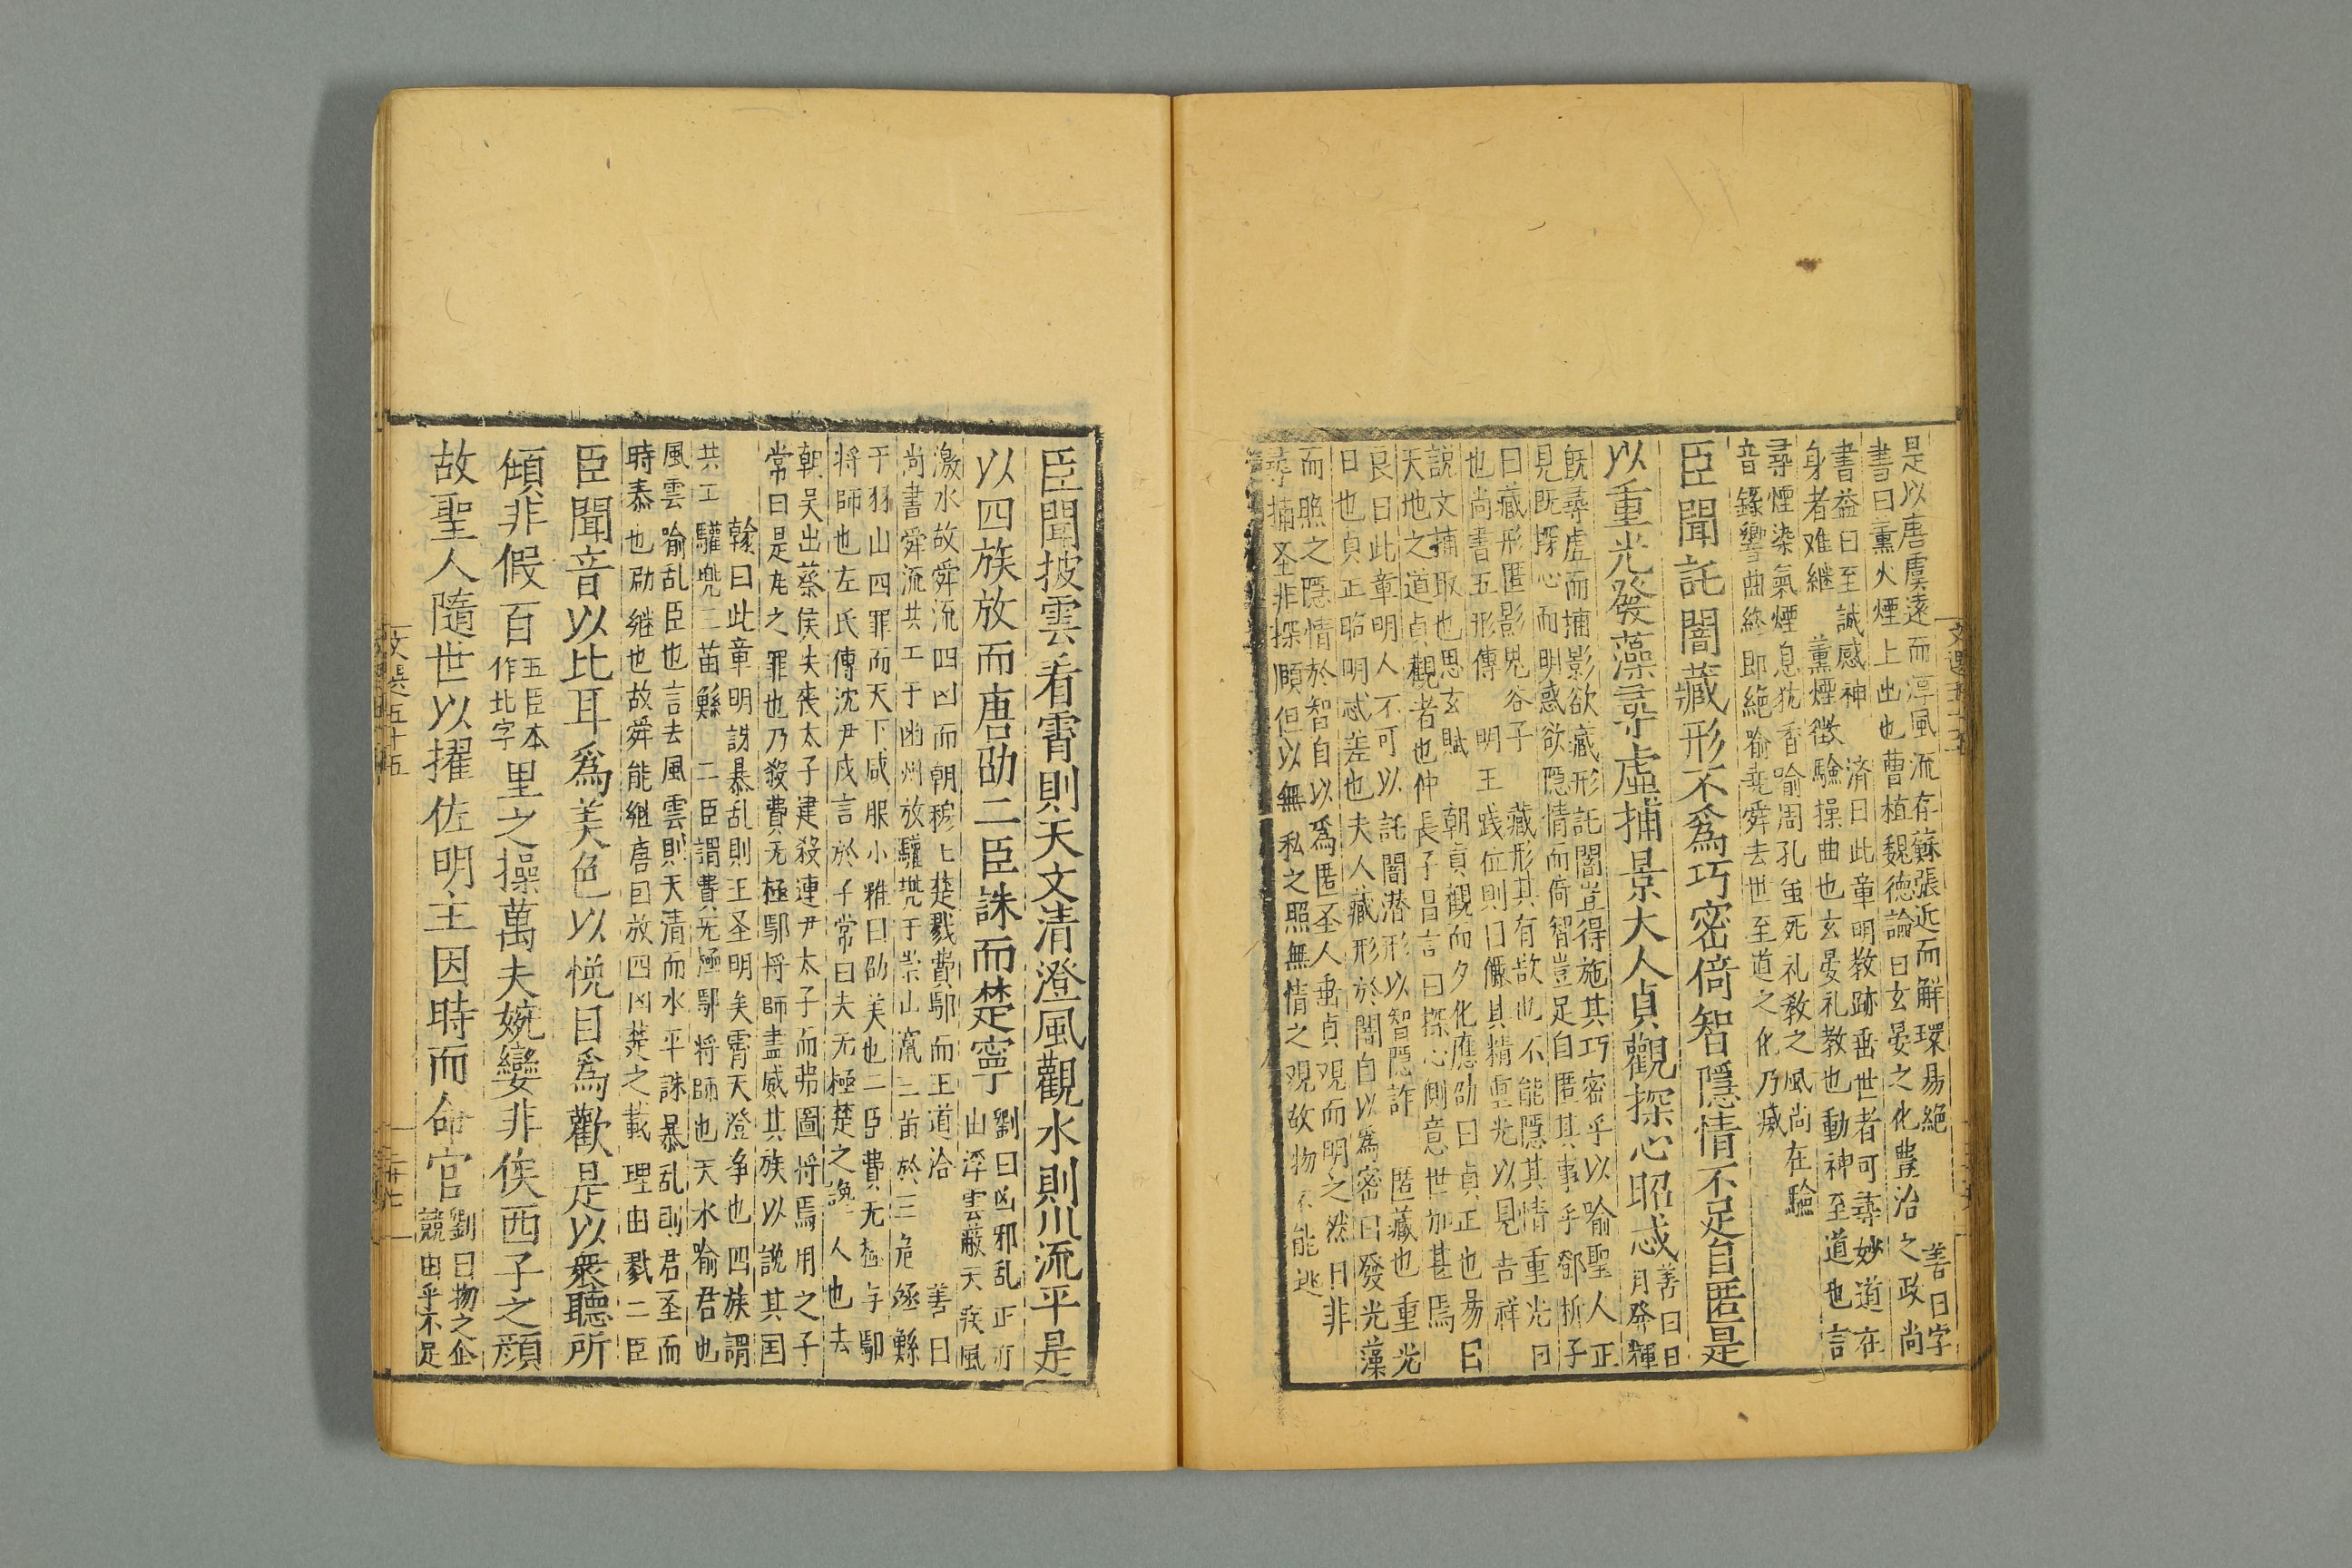 是以唐虞遠而淳風流存蘇張近而解環易絶　善曰字
書曰薰火煙上出也曹植魏德論曰玄晏之化豊洽之政尚
書益曰至誠感神　済曰此章明教跡垂世者可尋妙道在
身者难継　薰煙徴驗操曲也玄晏礼教也動神至道也言
尋煙染氣煙息犹香喻周孔虽死礼教之風尚在驗
音録響曲終即絶喻堯舜去世至道之化乃㓕
臣聞託闇藏形不爲巧密倚智隱情不足自匿是
以重光發藻尋虛捕景大人貞觀探心昭忒
善曰日
月發輝
既尋虛而捕影欲藏形託闇豈得施其巧密乎以喻聖人正
見既探心而明惑欲隠情而倚智豈足自匿其事乎鄧析子
曰藏形匿影鬼谷子　藏形其有欲也不能隱其情重光日
也尚書五形傳　明王践位則日儷其精重光以見吉祥
說文捕取也思玄賦　朝貞觀而夕化應劭曰貞正也易曰
天地之道貞觀者也仲長子昌言曰探心測意世加甚焉
良曰此章明人不可以託闇潜形以智隠詐　匿藏也重光
日也貞正昭明忒差也夫人藏形於闇自以為密日發光藻
而照之隱情於智自以爲匿圣人垂貞观而明之然日非
尋捕圣非探願但以無私之照無情之观故物不能逃
臣聞披雲看霄則天文清澄風觀水則川流平是
以四族放而唐劭二臣誅而楚寧
劉曰凶邪乱正河
山浮雲蔽天疾風
激水故舜流四凶而朝穆上楚戮費鄢而王道洽　善曰
尚書舜流共工于幽州放驩兜于崇山竄三苗於三危殛鯀
于羽山四罪而天下咸服小雅曰劭美也二臣費无極与鄢
将師也左氏傳沈尹戌言於子常曰夫无極楚之讒人也去
朝吴出蔡侯朱喪太子建殺連尹太子而弗圖将焉用之子
常曰是瓦之罪也乃殺費无極鄢将師盡滅其族以說其国
翰曰此章明誅暴乱則王圣明矣霄天澄争也四族謂
共工驩兜三苗鯀　二臣謂費无極鄢将師也天水喻君也
風雲喻乱臣也言去風雲則天清而水平誅暴乱則君圣而
時泰也劭継也故舜能継唐囙放四凶楚之載理由戮二臣
臣聞音以比耳爲美色以悦目爲歡是以衆聽所
傾非假百
五臣本
作北字
里之操萬夫婉孌非俟西子之顔
故聖人隨世以擢佐明主因時而命官
劉曰物之企
競由乎不足
文選五十五